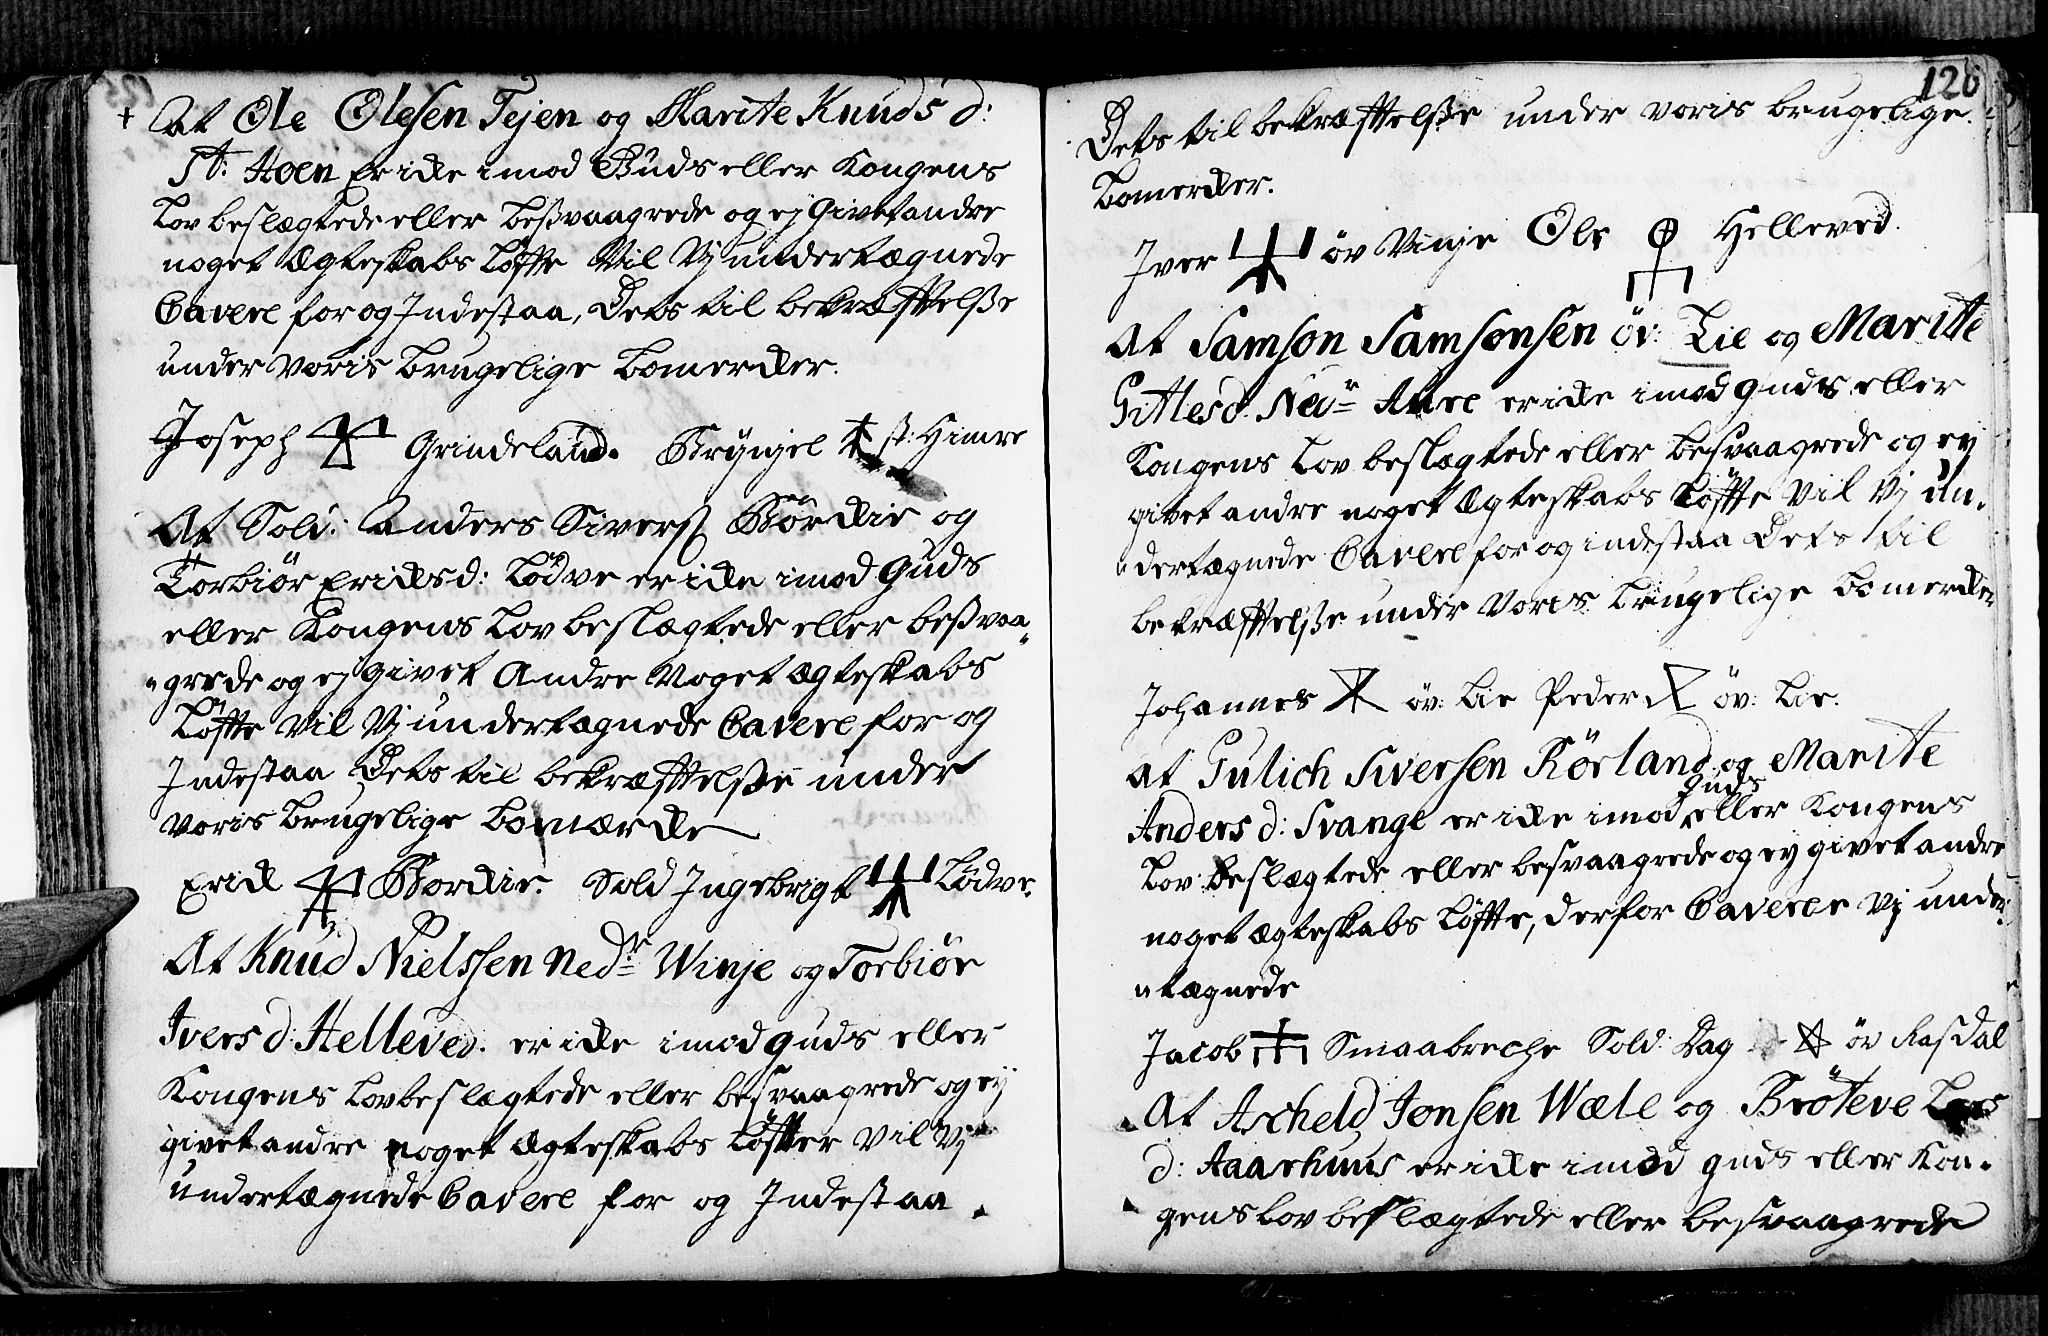 + At Ole Olesen Tejen og Maritte Knuds d:
St: Hoen Er icke imod Guds eller Kongens
Lov beslægtede eller besvaagrede og ej Givet andre
noget Ægteskabs Løffte Vil Vj undertægnede
Cavere for og Indestaa, Dets til bekræfftelsse
under Voris brugelige bomercker.
Joseph Grindeland. Brÿnjel st: Himre
At Sold: Anders Siverss Börckie og
Torbiör Ericksd: Lödve er icke imod Guds
eller Kongens Lov beslægtede eller besvaa„
„grede og ej givet Andre Noget Ægteskabs
Löffte Vil Vj undertægnede Cavere for og
Indestaa Dets til bekræfftelsse under
Voris brugelige bomærcke
Erick Borckie. Sold Ingebrigt Lödve.
At Knud Nielssen Nedr Winje og Torbiör
Ivers d: Helleved. er icke imod guds eller
Kongens Lov beslægtede eller besvaagrede og ej
givet andre noget Ægteskabs Löffter Vil Vj
undertægnede Cavere for og Indestaa
126
Dets til bekræfftelsse under voris brugelige
bomercker.
Iver öv Vinje Ole Helleved.
At Samson Samsonsen öv: Lie og Maritte
Gittlesd. Nedr Aure er icke imod guds eller
Kongens Lov beslægtede eller besvaagrede og ej
givet andre noget Ægteskabs Löffte Vil Vj un„
„dertægnede Cavere for og indestaa Dets til
bekræfftelsse under Voris brugelige bomercker
Johannes öv: Lie Peder öv: Lie.
At Gulich Siversen Rörland og Maritte
Anders d: Svange er icke imod Guds eller Kongens
Lov beslægtede eller besvaagrede og ej givet andre
noget ægteskabs Löffte, derfor Caverer Vj under„
„tægnede
Jacob Smaabreche Sold: Dag öv Rasdal
At Ascheld Jonsen Wæle og Bröteve Lars
d: Aaarhuus er icke imod guds eller Kon„
gens Lov beslægtede eller besvaagrede